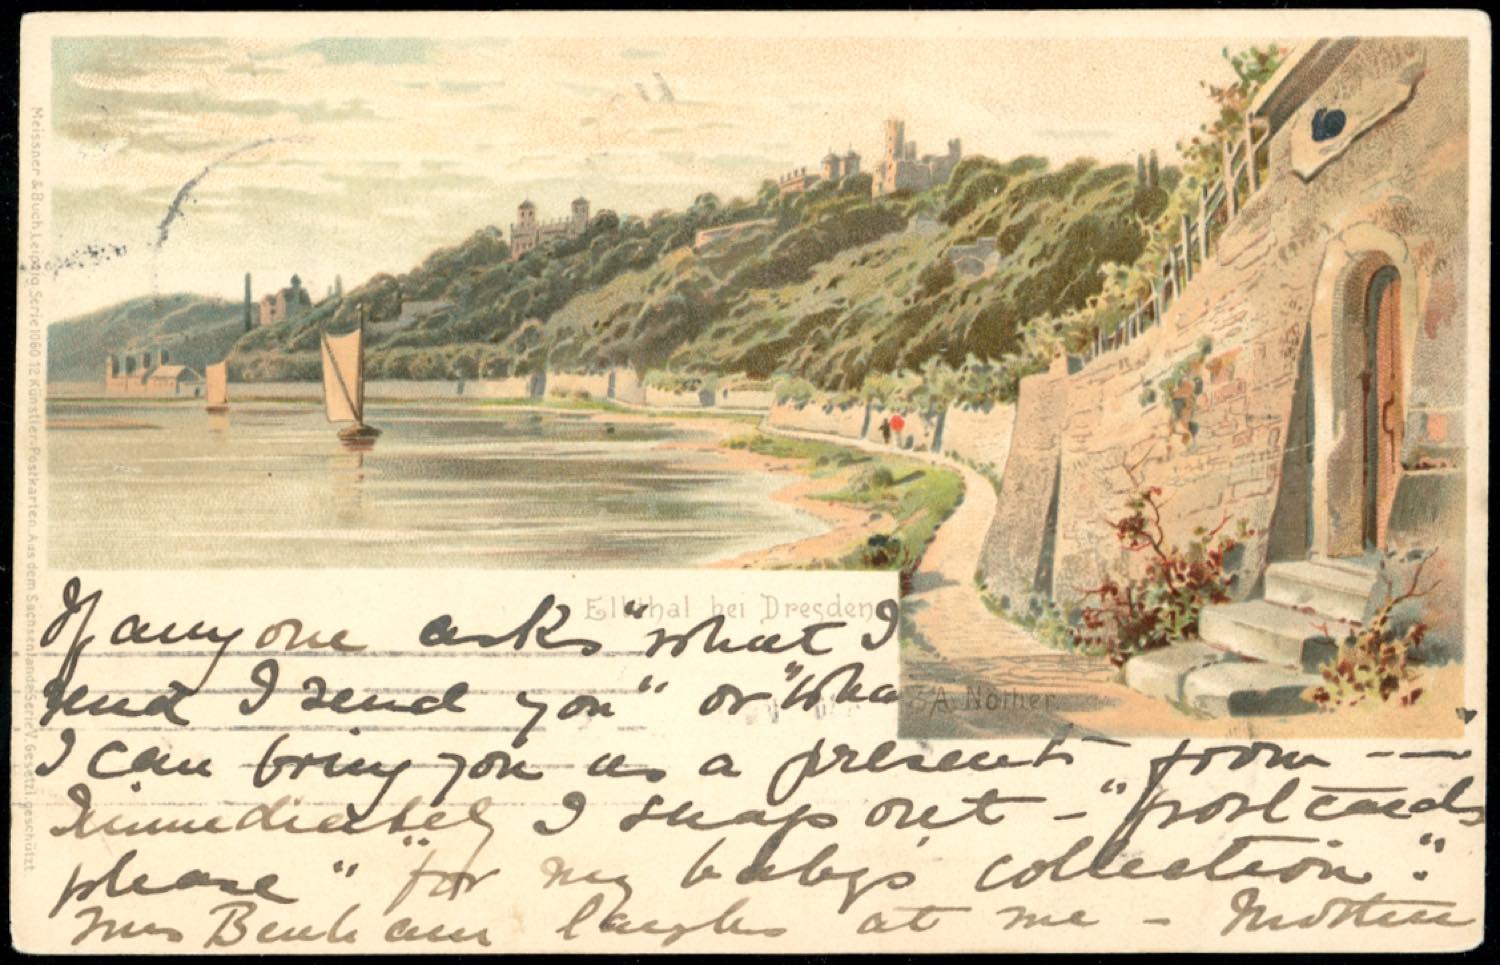 Meissner & Buch, Leipzig. Serie 1060. 12 Künstler-Postkarten. Aus dem Sachsenlande Serie V. Gesetzl. geschützt
Elbthal bei Dresden
A. Nöther
If any one asks "what I
send I send you" or "wha
I can bring you as a present from - —
Immediately I snap out - "post cards
please" "for my baby's collection".
Mrs Benham laughs at me - Mother